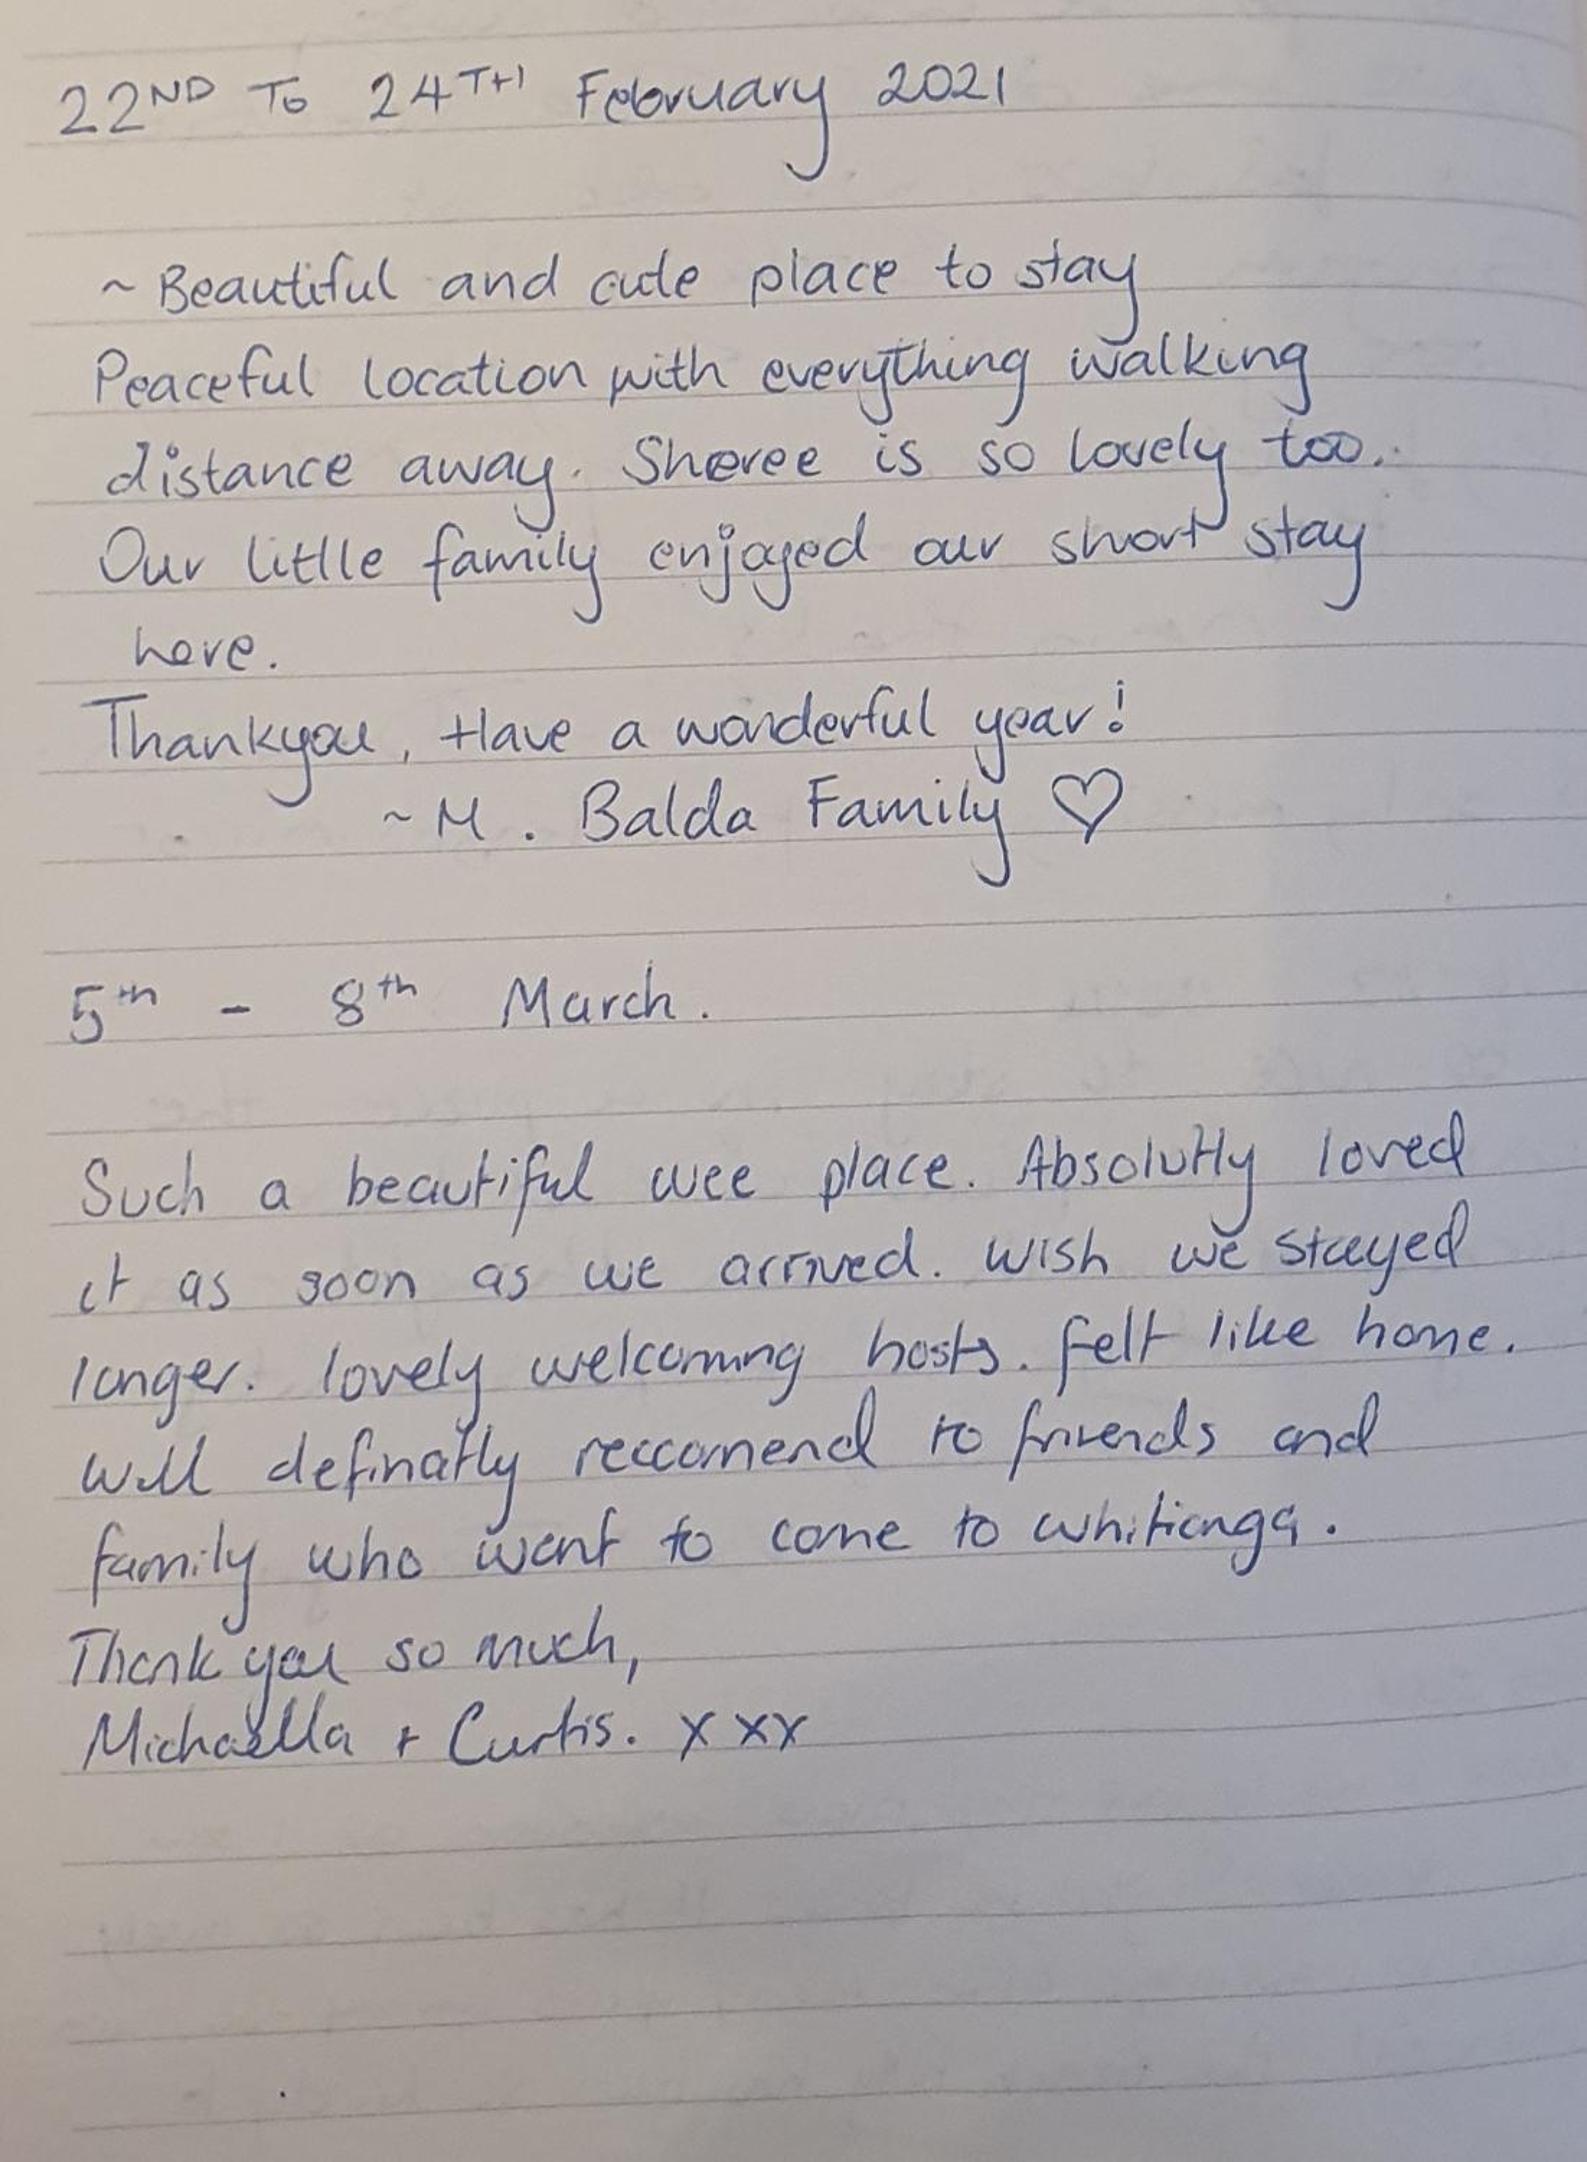 22ND TO 24TH February 2021
~ Beautiful and cute place to stay
Peaceful location with everything walking
distance away. Sheree is so lovely too.
Our little family enjoyed our short stay
here.
Thankyou, Have a wonderful year!
~ M. Balda Family ♡
5th - 8th March.
Such a beautiful wee place. Absolutly loved
it as soon as we arrived. wish we stayed
longer. lovely welcoming hosts. felt like home.
will definatly reccomend to friends and
family who want to come to whitianga.
Thank you so much,
Michaella + Curtis. xxx